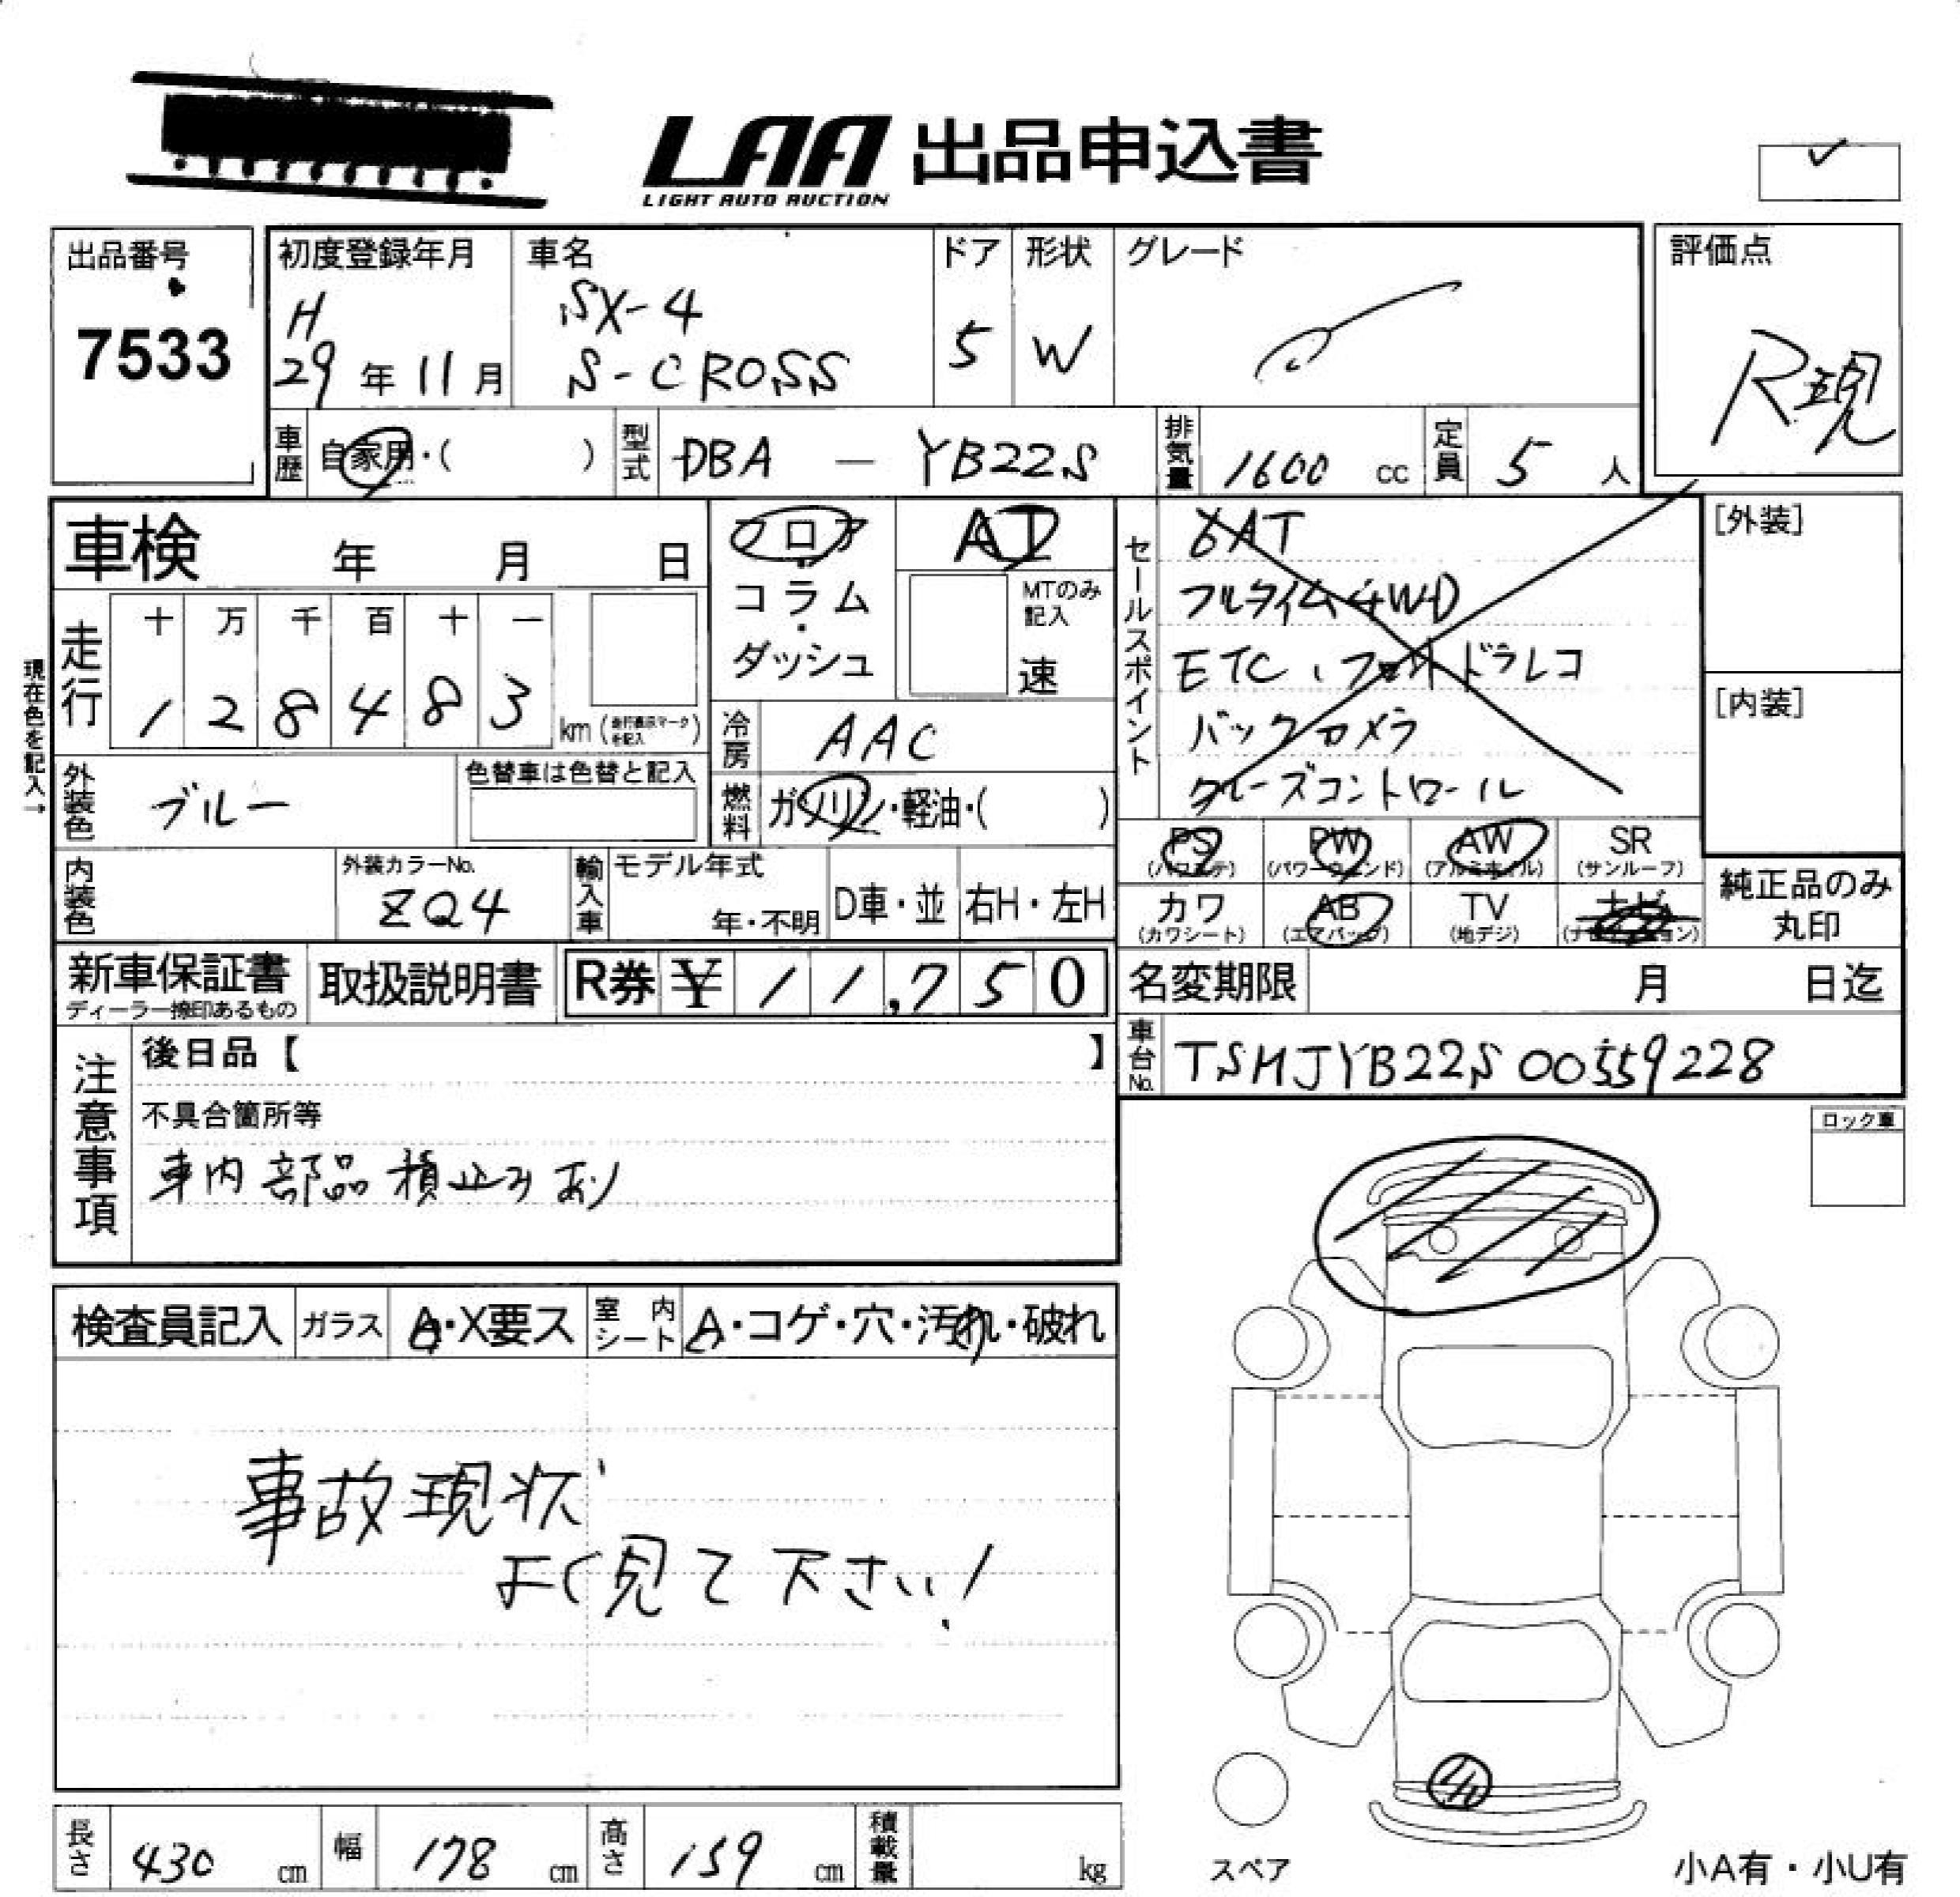 LAA 出品申込書
LIGHT AUTO AUCTION
出品番号
7533
初度登録年月
H
29年11月
車名
SX-4
S-CROSS
ドア
5
形状
W
グレード
評価点
R現
車歴
自家用・( )
型式
DBA — YB22S
排気量
1600 cc
定員
5 人
車検 年 月 日
フロア
・
コラム
・
ダッシュ
AT
MTのみ記入
速
現在色を記入→
走行
十 万 千 百 十 一
1 2 8 4 8 3
km (走行表示マークを記入)
冷房
AAC
外装色
ブルー
色替車は色替と記入
燃料
ガソリン・軽油・( )
内装色
外装カラーNo.
ZQ4
輸入車
モデル年式
年・不明
D車・並
右H・左H
セールスポイント
6AT
フルタイム4WD
ETC、フロントドラレコ
バックカメラ
クルーズコントロール
[外装]
[内装]
PS
(パワステ)
PW
(パワーウインド)
AW
(アルミホイル)
SR
(サンルーフ)
カワ
(カワシート)
AB
(エアバック)
TV
(地デジ)
ナビ
(ナビゲーション)
純正品のみ
丸印
新車保証書
ディーラー捺印あるもの
取扱説明書
R券 ¥ 11,750
名変期限 月 日迄
車台No.
TSMJYB22S00559228
注意事項
後日品【 】
不具合箇所等
車内部品積込みあり
ロック車
検査員記入
ガラス
A・X要ス
室内シート
A・コゲ・穴・汚れ・破れ
事故現状
よく見て下さい!
長さ
430 cm
幅
178 cm
高さ
159 cm
積載量
kg
スペア
小A有・小U有